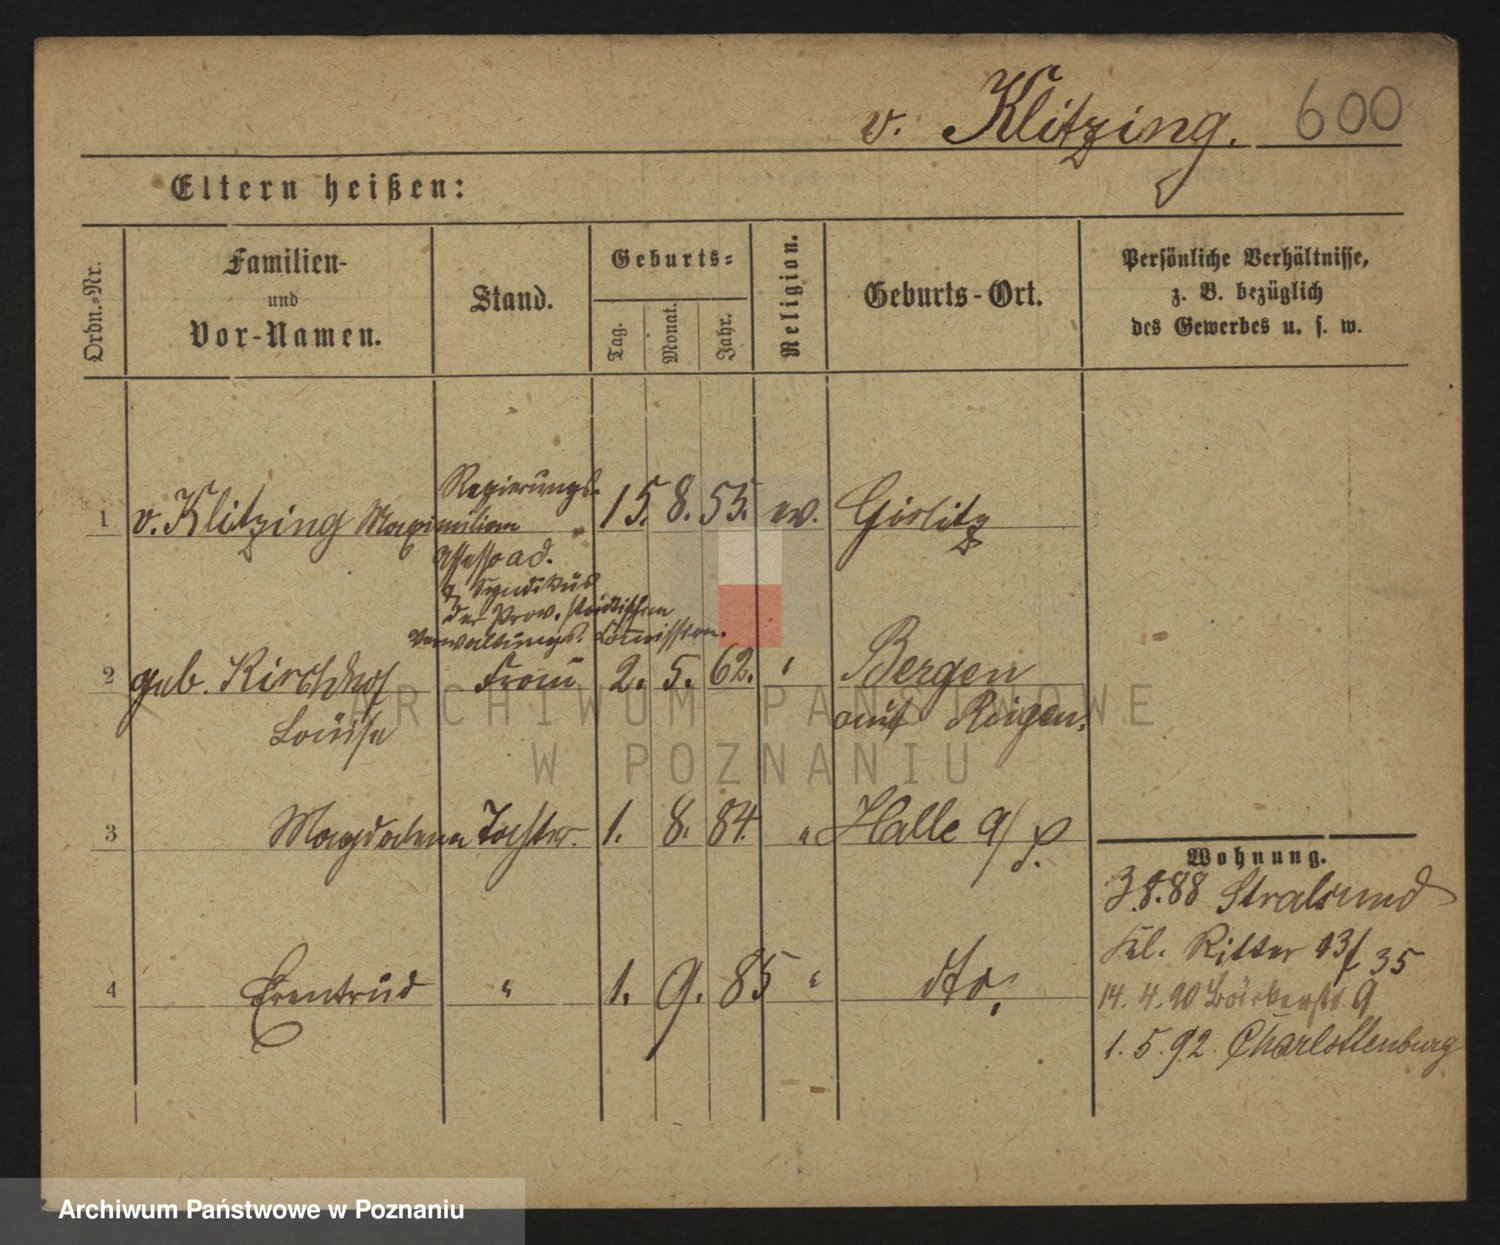 v. Klitzing. 600
Eltern heißen:
Ordn.-Nr.
Familien-
und
Vor-Namen.
Stand.
Geburts-
Tag.
Monat.
Jahr.
Religion.
Geburts-Ort.
Persönliche Verhältnisse,
z. B. bezüglich
des Gewerbes u. s. w.
Regierungs-
1 v. Klitzing Maximilian 15. 8. 55. ev. Görlitz
Assessor ad.
& Syndikus
der Prov. ständischen
Verwaltungs. Commission.
2 geb. Kirchhof Frau 2. 5. 62. " Bergen
Louise auf Rügen.
3 Magdalena Tochter. 1. 8. 84. " Halle a/S.
4 Erentrud " 1. 9. 85 " dto.
Wohnung.
3.8.88 Stralsund
Kl. Ritter 13/ 35
14. 4. 90 Bäckerstr. 9
1. 5. 92. Charlottenburg
ARCHIWUM PAŃSTWOWE
W POZNANIU
Archiwum Państwowe w Poznaniu